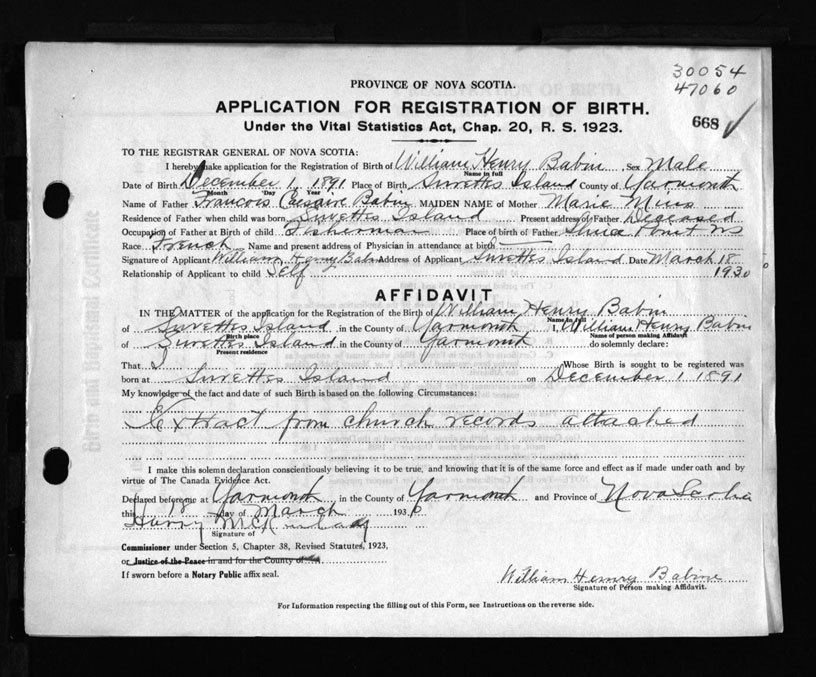 30054
47060
668
PROVINCE OF NOVA SCOTIA.
APPLICATION FOR REGISTRATION OF BIRTH.
Under the Vital Statistics Act, Chap. 20, R. S. 1923.
TO THE REGISTRAR GENERAL OF NOVA SCOTIA:
I hereby make application for the Registration of Birth of William Henry Babin Sex Male
Name in full
Date of Birth December 1, 1891 Place of Birth Surettes Island County of Yarmouth
Month Day Year
Name of Father Francois Caesaire Babin MAIDEN NAME of Mother Marie Mius
Residence of Father when child was born Surettes Island Present address of Father Deceased
Occupation of Father at Birth of child Fisherman Place of birth of Father Sluice Point NS
Race French Name and present address of Physician in attendance at birth
Signature of Applicant William Henry Babin Address of Applicant Surettes Island Date March 18
Relationship of Applicant to child Self 1930
AFFIDAVIT
IN THE MATTER of the application for the Registration of the Birth of William Henry Babin
Name in full
of Surettes Island in the County of Yarmouth I, William Henry Babin
Birth place Name of person making Affidavit
of Surettes Island in the County of Yarmouth do solemnly declare:
Present residence
That I Whose Birth is sought to be registered was
born at Surettes Island on December 1 1891
My knowledge of the fact and date of such Birth is based on the following Circumstances:
Extract from church records attached
I make this solemn declaration conscientiously believing it to be true, and knowing that it is of the same force and effect as if made under oath and by
virtue of The Canada Evidence Act.
Declared before me at Yarmouth in the County of Yarmouth and Province of Nova Scotia
this 18 day of March 193
Harry
Signature of
Commissioner under Section 5, Chapter 38, Revised Statutes, 1923,
or Justice of the Peace in and for the County of
If sworn before a Notary Public affix seal.
William Henry Babin
Signature of Person making Affidavit.
For Information respecting the filling out of this Form, see Instructions on the reverse side.